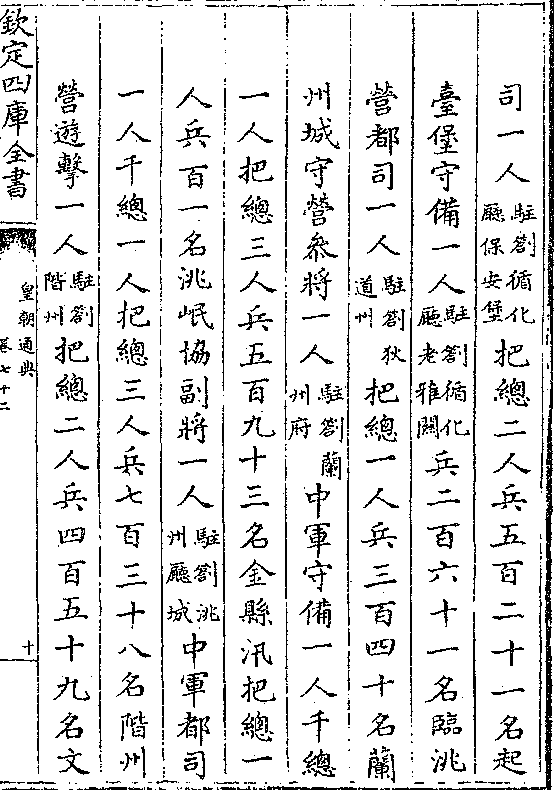 司一人駐劄循化廳保安堡把總二人兵五百二十一名起
臺堡守備一人駐劄循化廳老鴉關兵二百六十一名臨洮
營都司一人駐劄狄道州把總一人兵三百四十名蘭
州城守營叅將一人駐劄蘭州府中軍守備一人千總
一人把總三人兵五百九十三名金縣汛把總一
人兵百一名洮岷協副將一人駐劄洮州廳城中軍都司
一人千總一人把總三人兵七百三十八名階州
營遊擊一人駐劄階州把總二人兵四百五十九名文
欽定四庫全書
皇朝通典
卷七十二
十